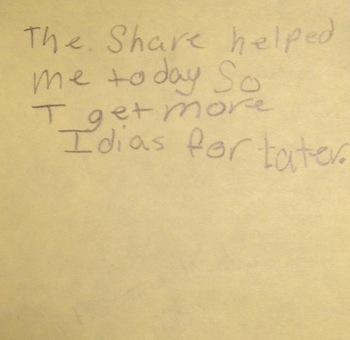 The. Share helped
me today So
I get more
Idias for later.